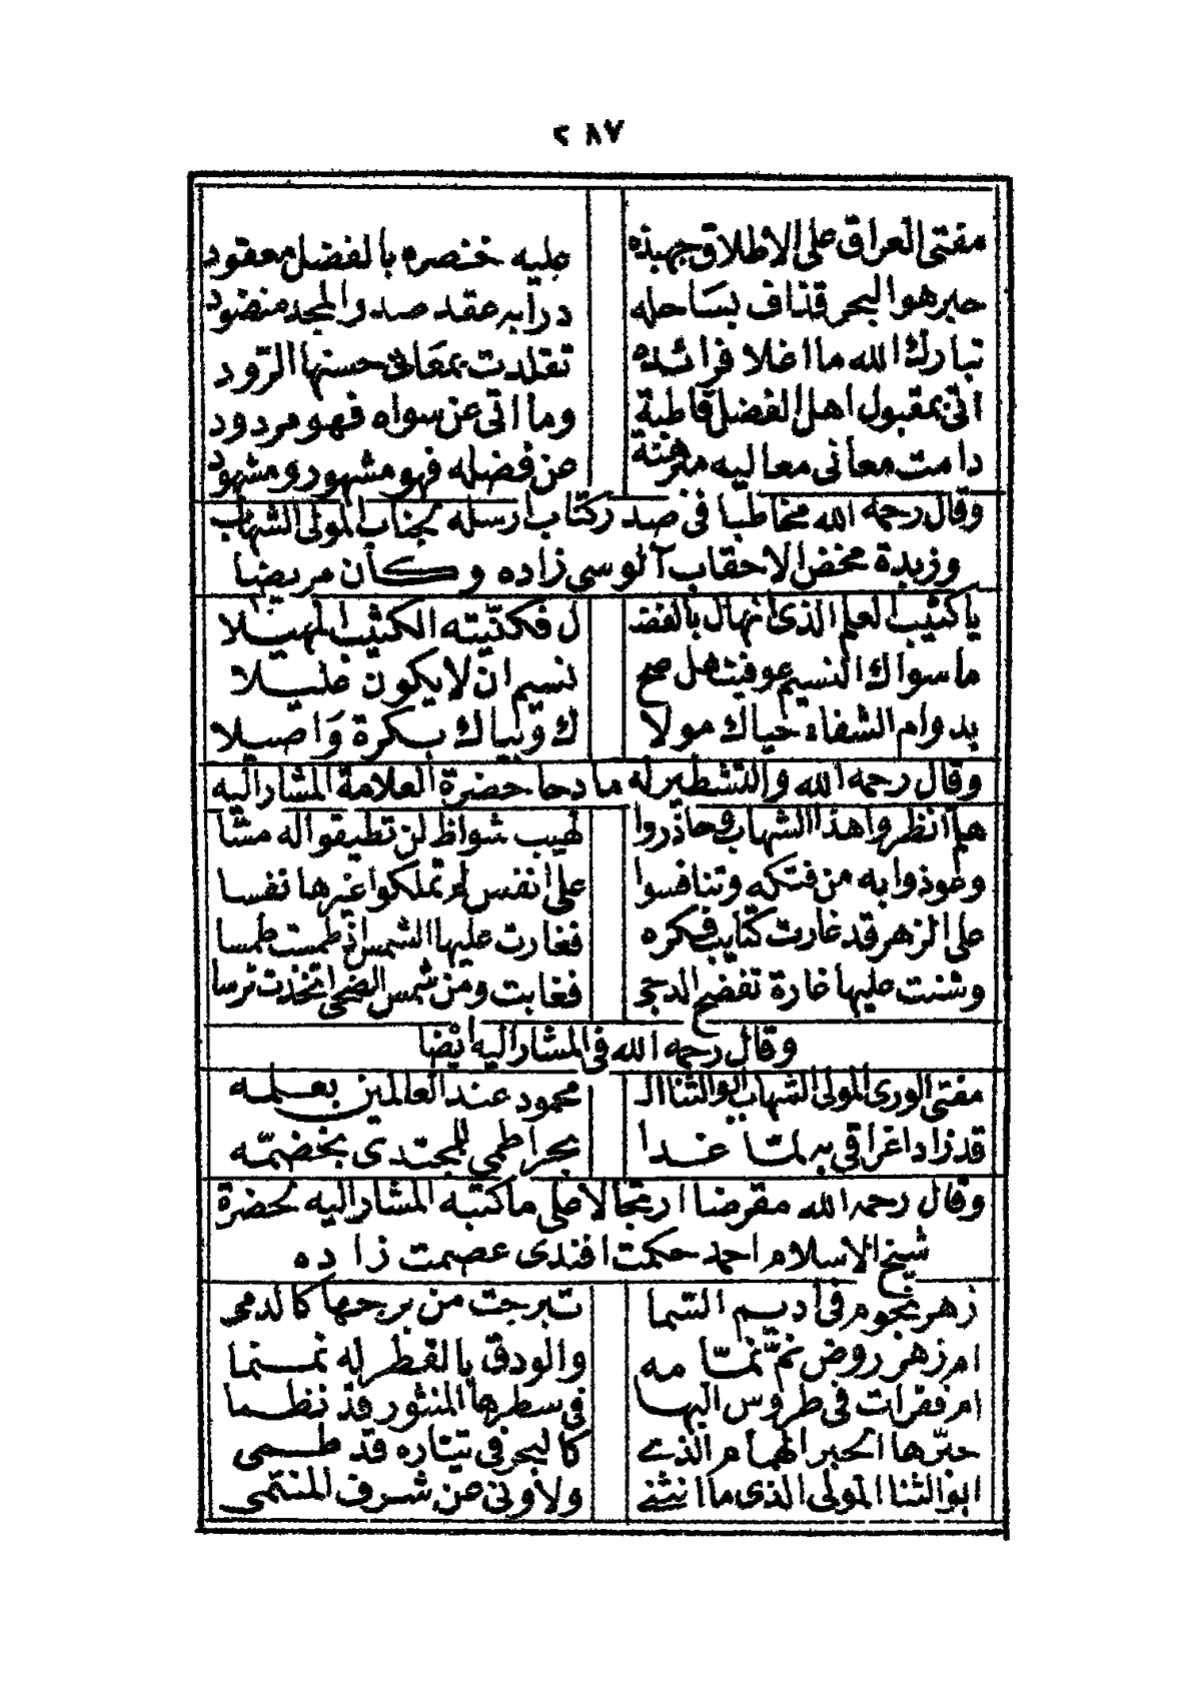 ٢٨٧
مفتى العراق على الاطلاق جهبذه عليه خنصره بالفضل معقود
حبر هو البحر قذاف بساحله درا به عقد صدر المجد منضود
تبارك الله ما اغلا فرائده تقلدت بمعانى حسنها الرود
اتى بمقبول اهل الفضل قاطبة وما اتى عن سواه فهو مردود
دامت معانى معاليه مبرهنة عن فضله فهو مشهور ومشهود
وقال رحمه الله مخاطبا فى صدر كتاب ارسله لجناب المولى الشهاب
وزبدة مخض الاحقاب آلوسى زاده وكان مريضا
يا كثيب العلم الذى انهال بالفضـ ل فكنيته الكثيب المهيلا
ما سواك النسيم عوفيت هل صح نسيم ان لا يكون عليلا
بدوام الشفاء حياك مولا ك وبياك بكرة واصيلا
وقال رحمه الله والتشطير له مادحا حضرة العلامة المشار اليه
هلم انظروا هذا الشهاب وحاذروا لهيب شواظ لن تطيقوا له مسّا
وعوذوا به من فتكه وتنافسوا على انفس لم تملكوا غيرها نفسا
على الزهر قد غارت كتايب فكره فغارت عليها الشمس اذ طمست طمسا
وشنت عليها غارة تفضح الدجى فغابت ومن شمس الضحى اتخذت ترسا
وقال رحمه الله فى المشار اليه ايضا
مفتى الورى المولى الشهاب ابو الثنا الـ محمود عند العالمين بعلمه
قد زاد اغراقى به لمّا غدا بحرا طمى للمجتدى بخضمّه
وقال رحمه الله مقرضا ارتجالا على ما كتبه المشار اليه لحضرة
شيخ الاسلام احمد حكمت افندى عصمت زاده
زهر نجوم فى اديم السما تبرجت من برجها كالدمى
ام زهر روض نمّ نمّامه والودق بالقطر له نمنما
ام فقرات فى طروس البها فى سطرها المنثور قد نظما
حبّرها الحبر الهمام الذى كالبحر فى تياره قد طمى
ابو الثنا المولى الذى ما انثنى ولا ونى عن شرف المنتمى